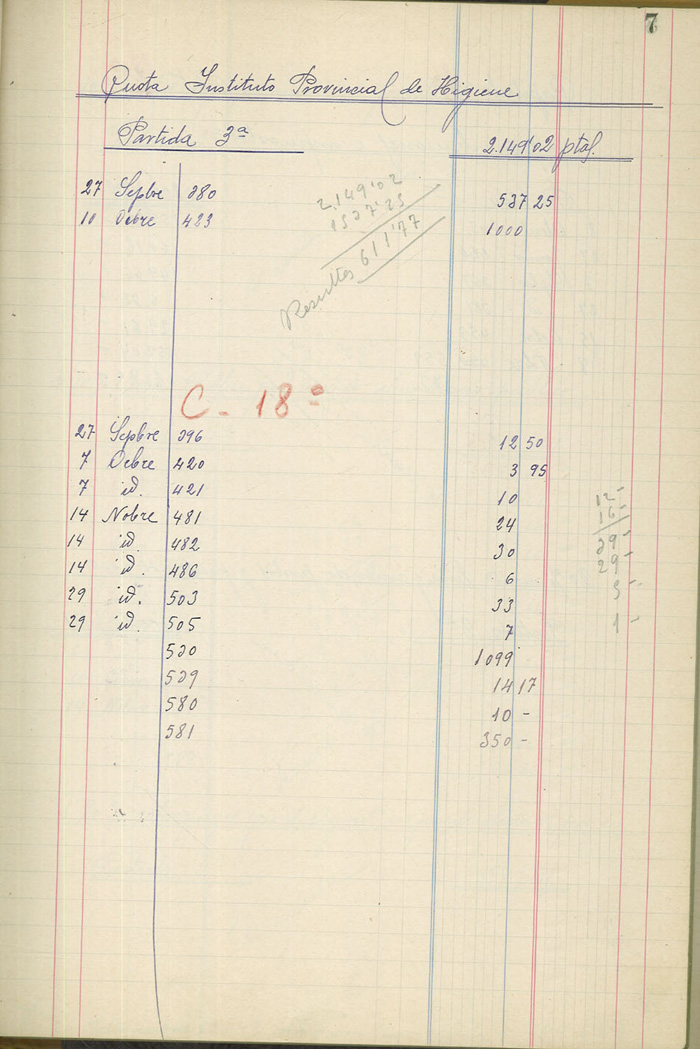 7
Quota Instituto Provincial de Higiene
Partida 3ª 2.149'02 ptas.
27 Sepbre 380 537 25
10 Ocbre 423 1000
2.149'02
1537'25
Resultas 611'77
C - 18º
27 Sepbre 396 12 50
7 Ocbre 420 3 95
7 id. 421 10
14 Nobre 481 24
14 id. 482 30
14 id. 486 6
29 id. 503 33
29 id. 505 7
530 1099
539 14 17
580 10 -
581 350 -
12-
29-
1-